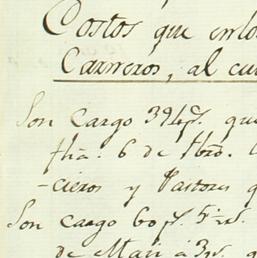 Costos que
Carreros, al
Son cargo 394 p.s que
fha: 6 de Hbro.
-cieros y Pastores
Son cargo 60 p.s 5 rs.
de Maiz á 3 rs.